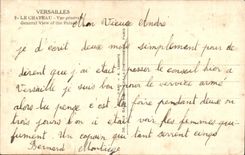 VERSAILLES
2 - LE CHATEAU - Vue générale
General View of the Palace
Mon Vieux André
je t'écrit deux mots simplement pour te
dire que j'ai était passer le conseil hier a
Versaille je suis bon pour le service armé
alors tu pense c'est la foire pendant deux ou
trois jours on a était voir les femmes qui
fument. Un copain qui tant serrent cinq
Bernard